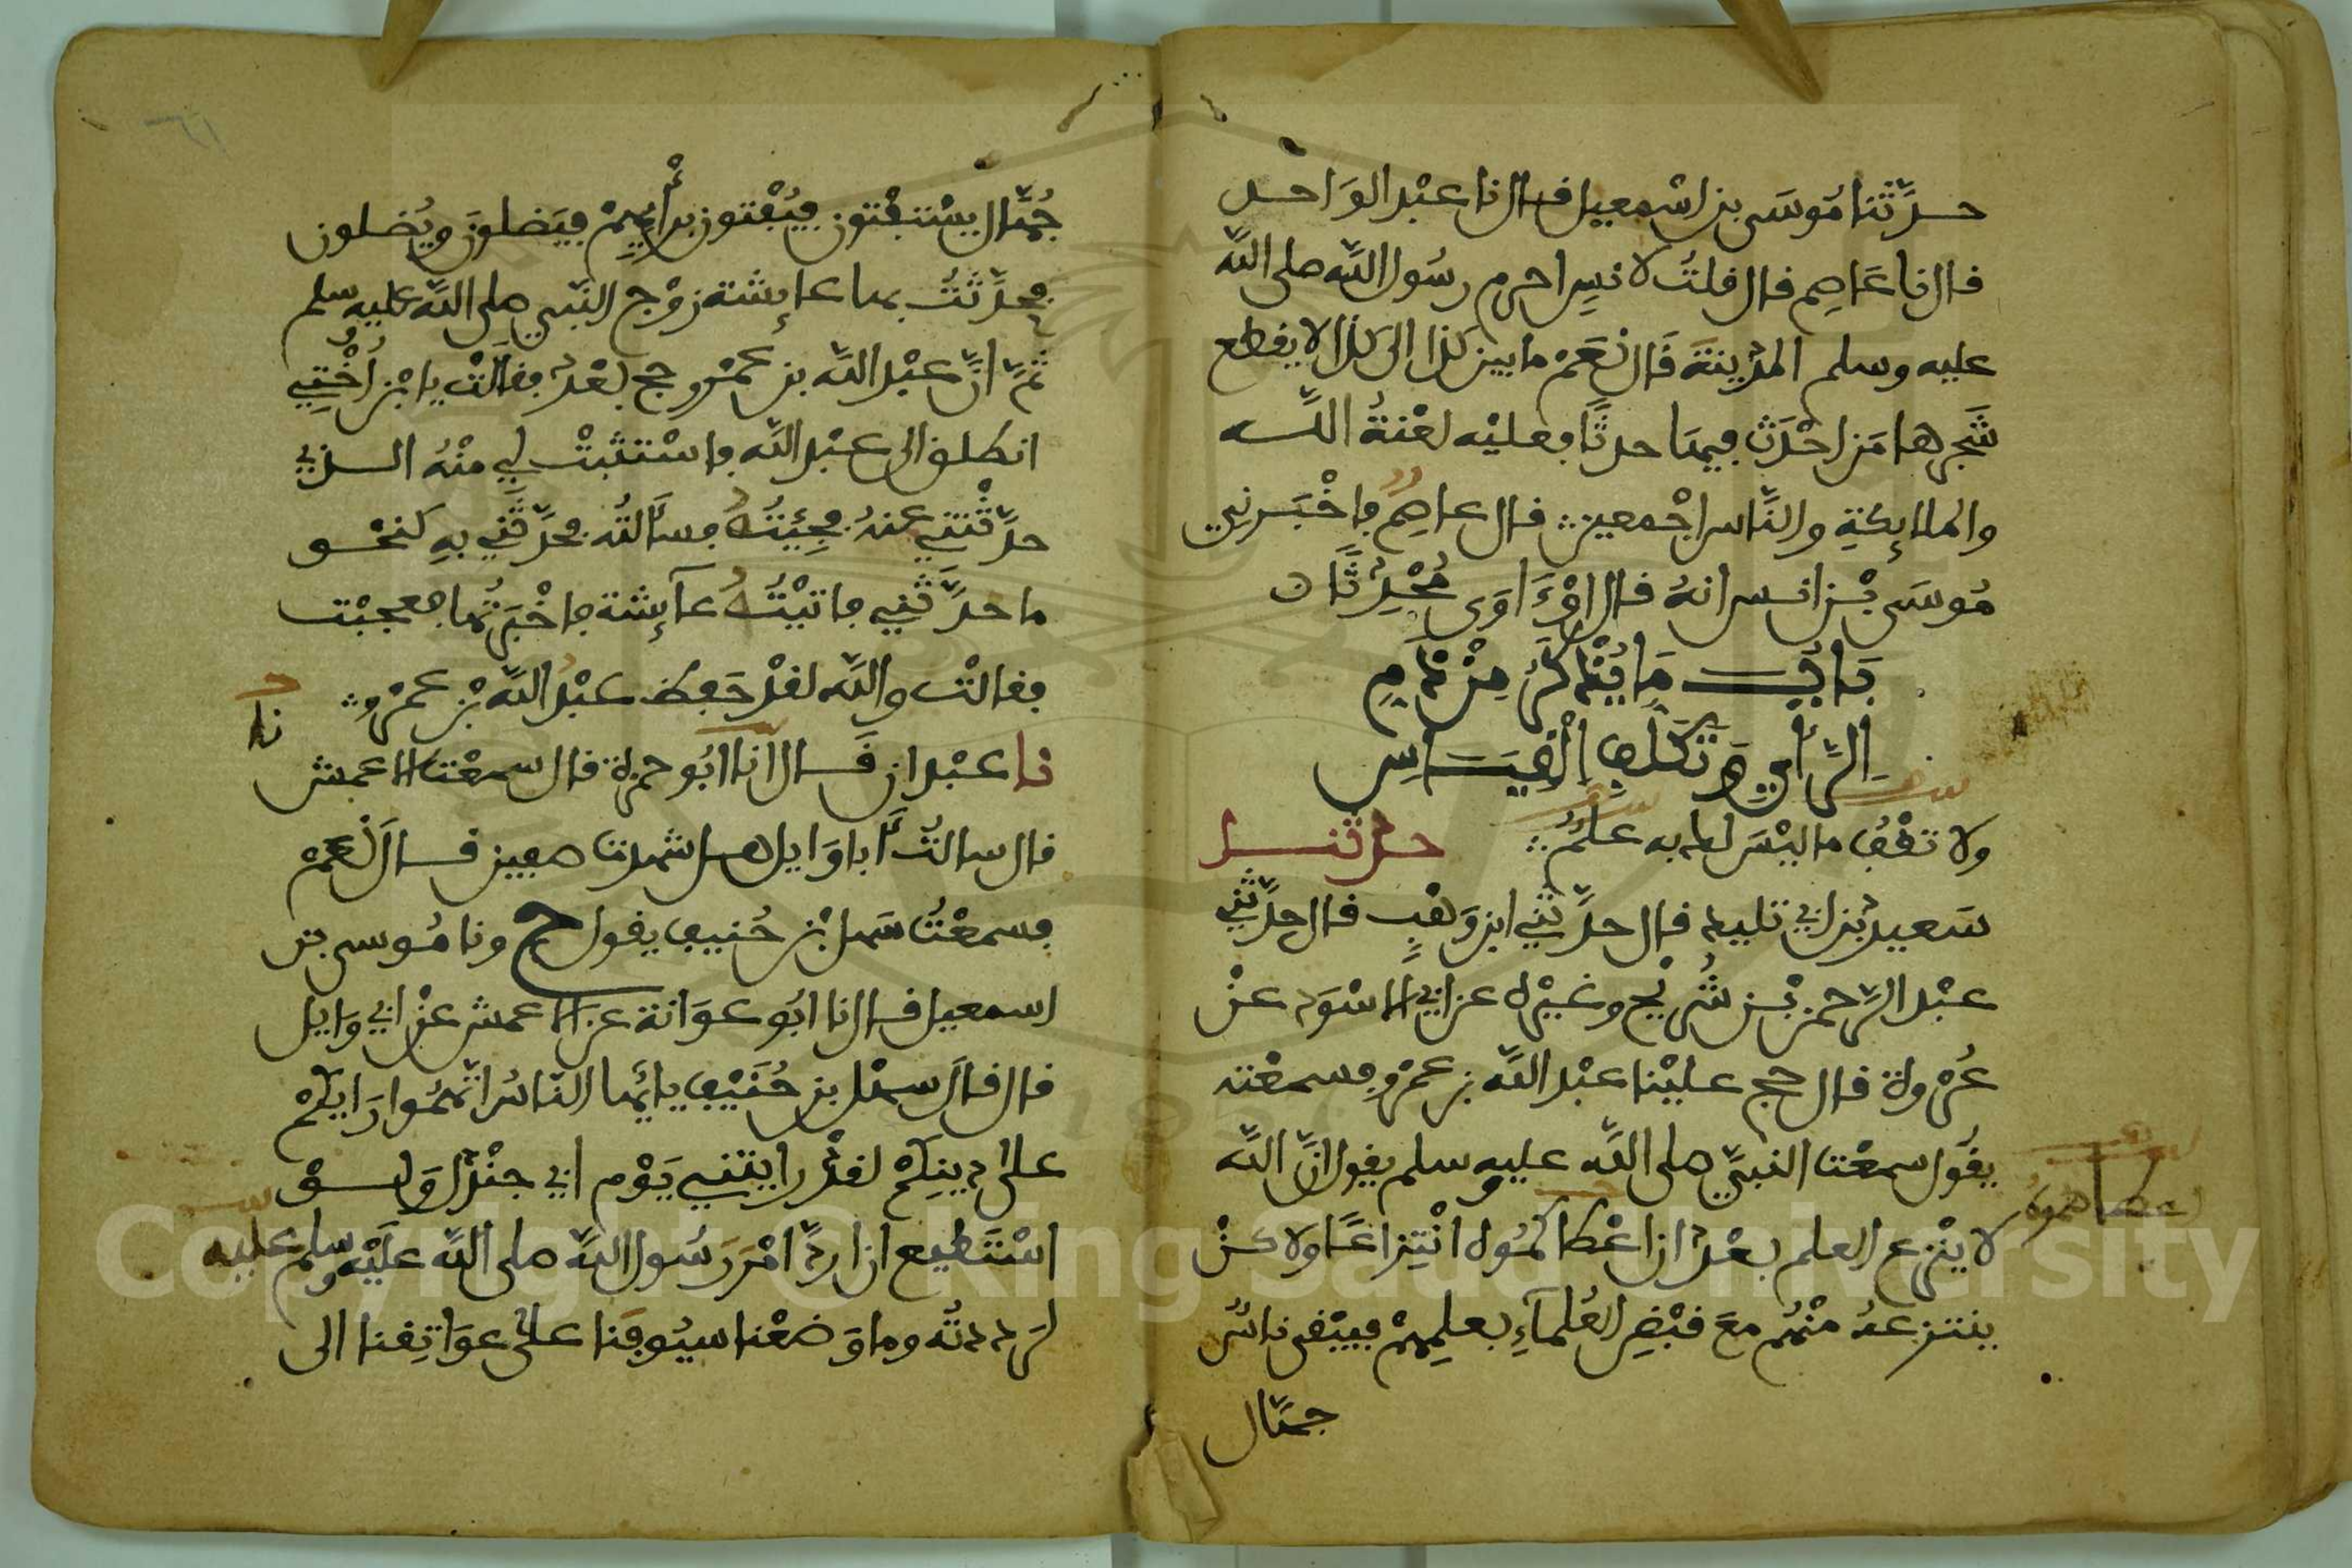 حدَّثنا مُوسَى بن اسْمعيل قال نا عبْد الوَاحد
قال نا عَاصم قال قلتُ لانسٍ احرم رسُول اللَّه صلى اللَّه
عليه وسلم المدِينةَ قَال نعَمْ ما بين كذا الى كذا لا يقطع
شَجرها مَن احْدَث فيها حدثًا فعليْه لعْنةُ اللَّه
والملائكةِ والنَّاس اجْمعين قال عاصِمٌ فاخْبَرني
مُوسَى بْن انس انهُ قال اوْءَاوَى مُحْدِثًا
بَابُ مَا يُذْكَرُ مِنْ ذَمِ
الرَّأيِ وَتَكَلُّفِ الْقِيَاسِ
ولا تقْفُ ما ليْسَ لك به علمٌ حدثنا
سَعيدُ بن ابي تليد قال حدَّثني ابن وَهْبٍ قال حدَّثني
عبْد الرَّحمن بْن شُريْح وغيْره عن ابي الاسْوَد عنْ
عُرْوة قال حج عليْنا عبْد اللَّه بن عمْرٍو فسمعْته
يقُول سمعْت النبيَّ صلى اللَّه عليه وسلم يقول انَّ اللَّه
لا ينْزع العلم بعْد ان اعْطاكمُوه انْتِزاعًا ولاكنْ
ينتزعهُ منْهُم معَ قبْضِ العُلمآءِ بعلمِهِمْ فيبْقى ناسٌ
جهَّال
جُهَّال يسْتفْتون فيُفْتون برأيِهِمْ فيَضلونَ ويُضلون
فحدَّثتُ بها عائشة زوْج النَّبي صلى اللَّه عليه وسلم
ثمَّ انَّ عبْد اللَّه بن عمْرو حج بعْدُ فقالَتْ يا ابْن اُخْتِي
انطلق الى عبْد اللَّه فاسْتثبتْ لي منْهُ الذي
حدَّثْتني عنهُ فجِئتُهُ فسأَلتُه فحدَّثَني بهِ كنحْو
ما حدَّثَني فاتيْتُ عآئشة فاخْبَرتُها فعجبْت
فقالتْ واللَّه لقدْ حَفِظ عبْدُ اللَّه بْن عمْرٍو
نا عبْدان قَال انا ابُو حمزة قال سمعْت الاعمش
قال سالتُ أَبا وَايل هل شهدت صفين قال نعَمْ
فسمعْتُ سَهل بْن حُنيف يقول ح ونا مُوسى بن
اسمعيل قال نا ابُو عوَانة عن الاعمش عنْ ابي وَايل
قال قالَ سهْل بن حُنَيْف يا أيُّها النَّاسُ اتَّهمُوا رَايكُمْ
على دِينِكُمْ لقدْ رايتني يَوْم ابي جنْدل وَلوْ
اسْتَطيع ان اردَّ امْرَ رَسُول اللَّه صلى اللَّه علَيْه وسلم عليه
لرَددتُه وما وَضعْنا سيُوفَنا على عوَاتِقنا الى